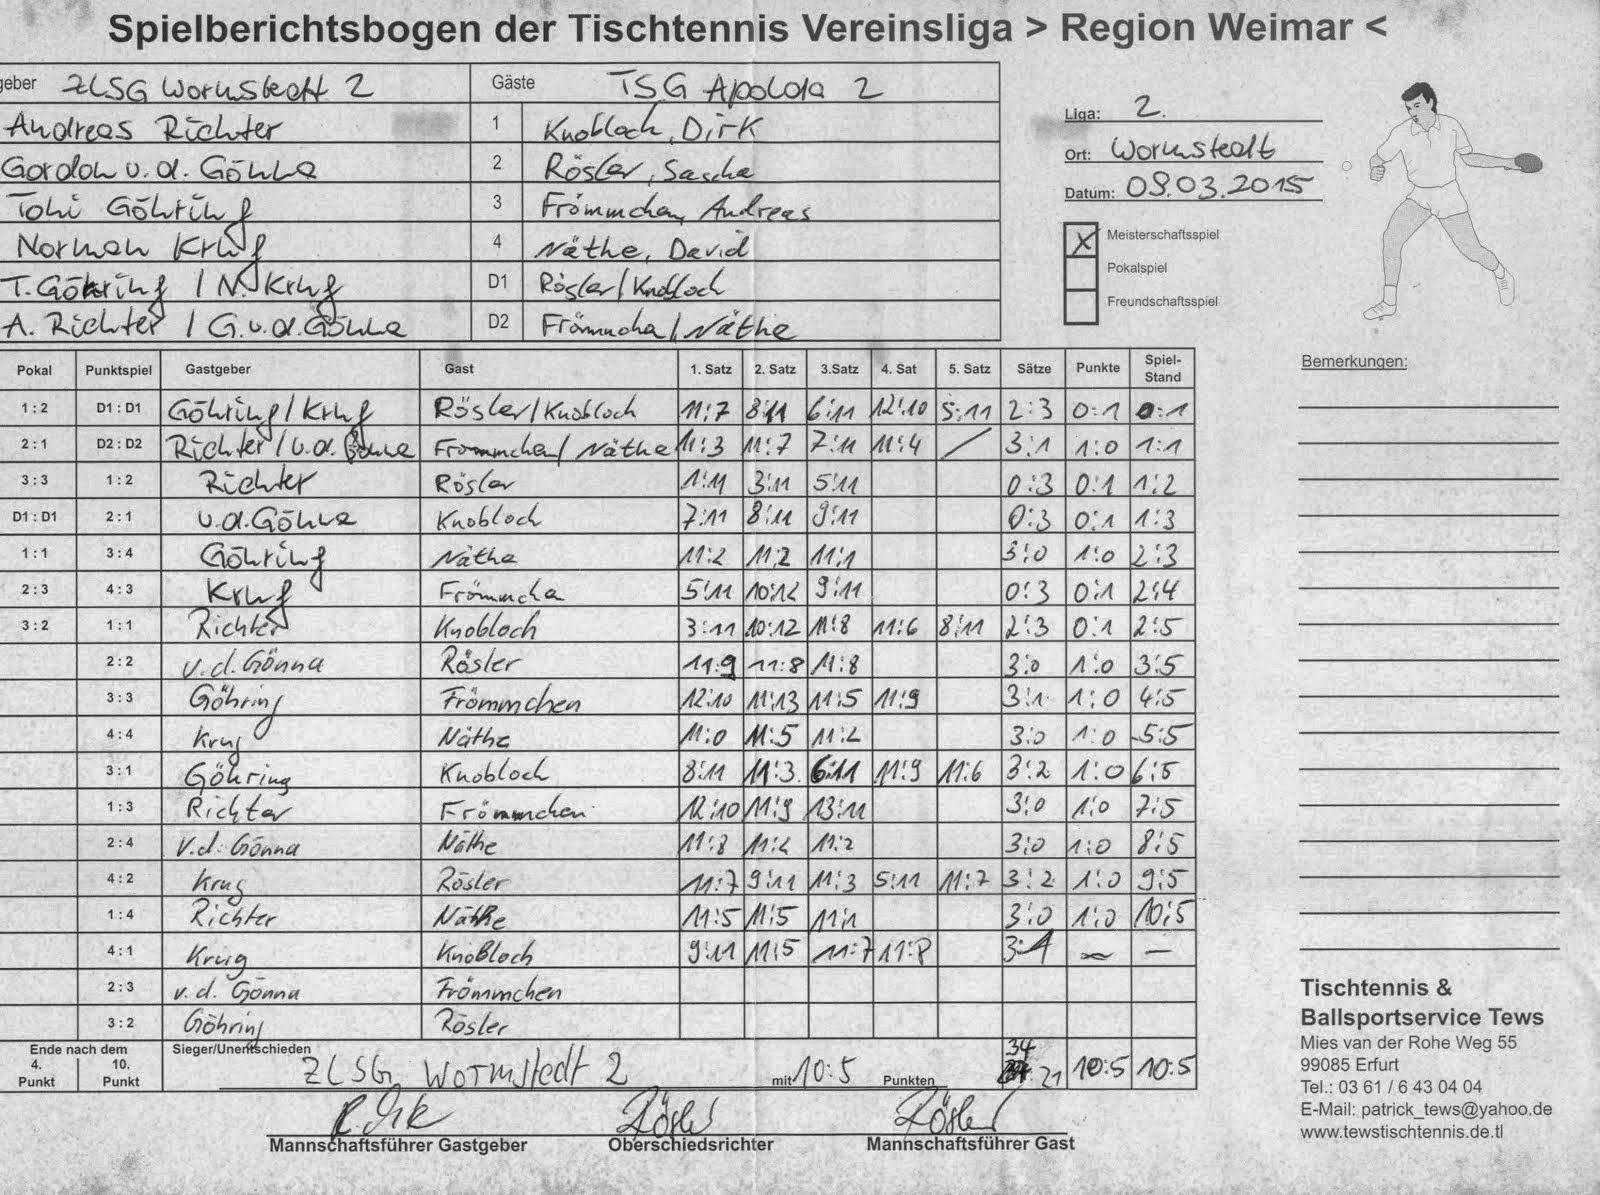 Spielberichtsbogen der Tischtennis Vereinsliga > Region Weimar <
geber ZLSG Wormstedt 2 Gäste TSG Apolda 2
Andreas Richter 1 Knobloch, Dirk
Gordon v. d. Gönna 2 Rösler, Sascha
Toni Göhring 3 Frömmchen, Andreas
Norman Krug 4 Näthe, David
T. Göhring / N. Krug D1 Rösler/Knobloch
A. Richter / G. v. d. Gönna D2 Frömmchen/Näthe
Liga: 2.
Ort: Wormstedt
Datum: 09.03.2015
X Meisterschaftsspiel
Pokalspiel
Freundschaftsspiel
Bemerkungen:
Pokal Punktspiel Gastgeber Gast 1. Satz 2. Satz 3.Satz 4. Sat 5. Satz Sätze Punkte Spiel-Stand
1 : 2 D1 : D1 Göhring/Krug Rösler/Knobloch 11:7 8:11 6:11 12:10 5:11 2:3 0:1 0:1
2 : 1 D2 : D2 Richter/v.d. Gönna Frömmchen/Näthe 11:3 11:7 7:11 11:4 / 3:1 1:0 1:1
3 : 3 1 : 2 Richter Rösler 1:11 3:11 5:11 0:3 0:1 1:2
D1 : D1 2 : 1 v.d. Gönna Knobloch 7:11 8:11 9:11 0:3 0:1 1:3
1 : 1 3 : 4 Göhring Näthe 11:2 11:2 11:1 3:0 1:0 2:3
2 : 3 4 : 3 Krug Frömmchen 5:11 10:12 9:11 0:3 0:1 2:4
3 : 2 1 : 1 Richter Knobloch 3:11 10:12 11:8 11:6 8:11 2:3 0:1 2:5
2 : 2 v.d. Gönna Rösler 11:9 11:8 11:8 3:0 1:0 3:5
3 : 3 Göhring Frömmchen 12:10 11:13 11:5 11:9 3:1 1:0 4:5
4 : 4 Krug Näthe 11:0 11:5 11:2 3:0 1:0 5:5
3 : 1 Göhring Knobloch 8:11 11:3 6:11 11:9 11:6 3:2 1:0 6:5
1 : 3 Richter Frömmchen 12:10 11:9 13:11 3:0 1:0 7:5
2 : 4 v.d. Gönna Näthe 11:8 11:2 11:2 3:0 1:0 8:5
4 : 2 Krug Rösler 11:7 9:11 11:3 5:11 11:7 3:2 1:0 9:5
1 : 4 Richter Näthe 11:5 11:5 11:1 3:0 1:0 10:5
4 : 1 Krug Knobloch 9:11 11:5 11:7 11:8 3:1 — —
2 : 3 v.d. Gönna Frömmchen
3 : 2 Göhring Rösler
Ende nach dem
4. Punkt 10. Punkt
Sieger/Unentschieden ZLSG Wormstedt 2 mit 10:5 Punkten 34 : 21 10:5 10:5
Rösler Rösler
Mannschaftsführer Gastgeber Oberschiedsrichter Mannschaftsführer Gast
Tischtennis &
Ballsportservice Tews
Mies van der Rohe Weg 55
99085 Erfurt
Tel.: 03 61 / 6 43 04 04
E-Mail: patrick_tews@yahoo.de
www.tewstischtennis.de.tl